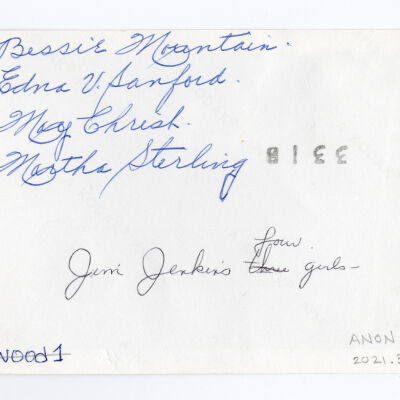 Bessie Mountain.
Edna V. Sanford.
May Chrish.
Martha Sterling
3318
four.
Jim Jenkins three girls-
wood1
ANON
2021.3